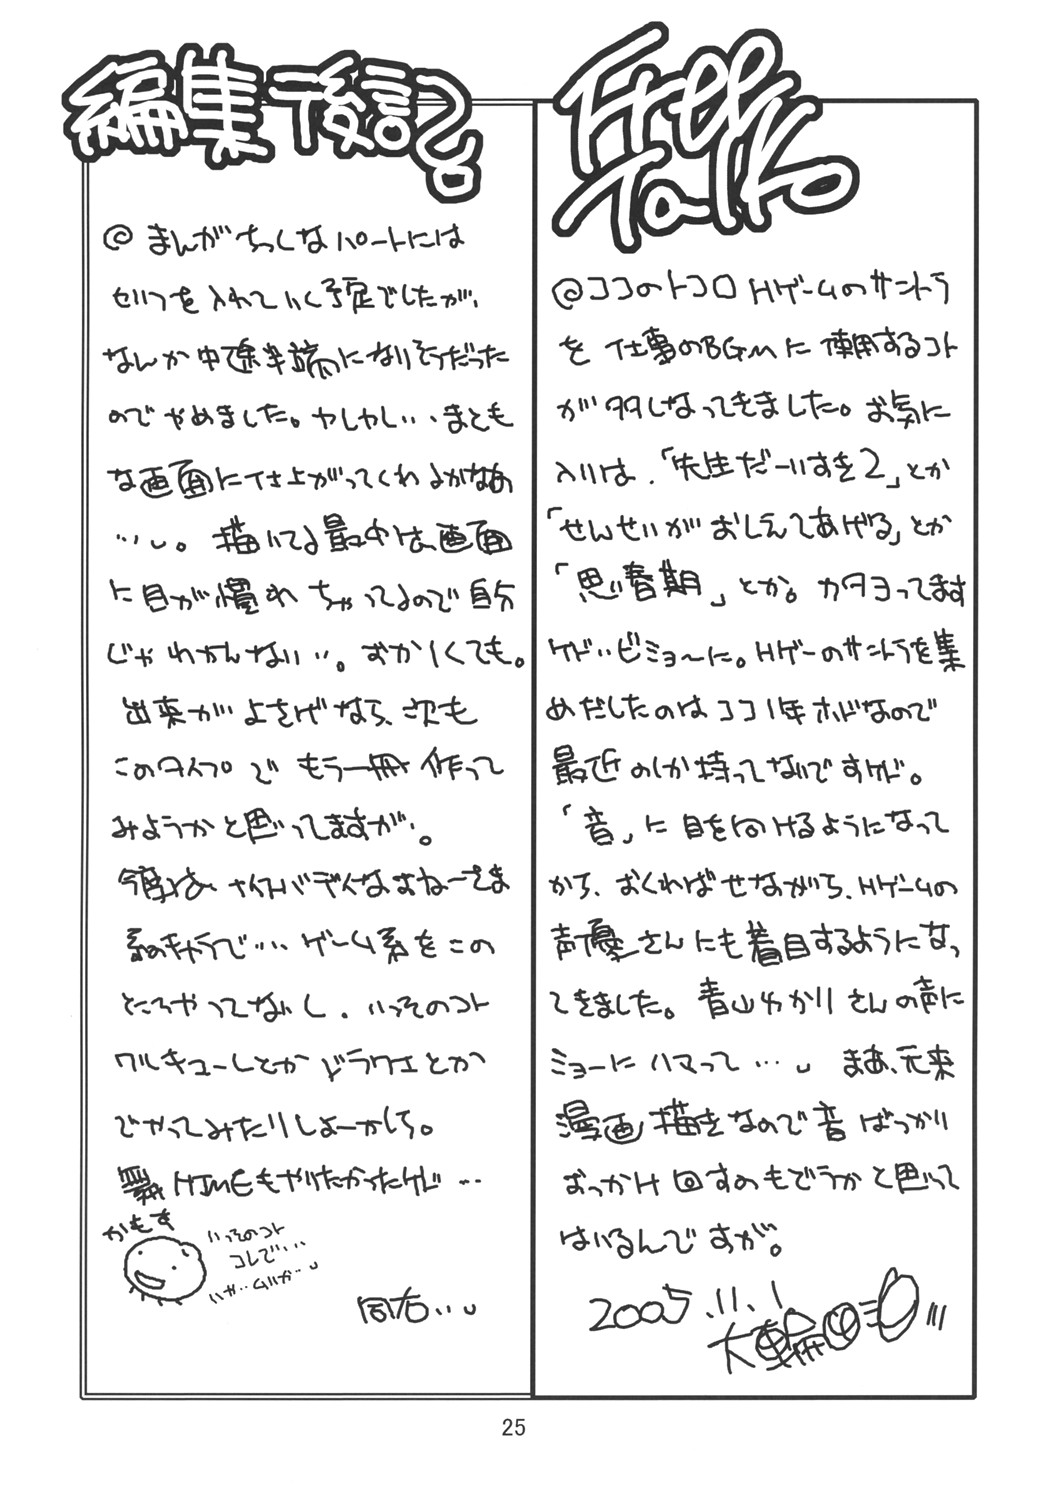 編集後記
@まんがちっくなパートには
セリフを入れていく予定でしたが、
なんか中途半端になりそうだった
のでやめました。しかしか‥まとも
な画面に仕上がってくれるかなあ
‥。描いてる最中は、画面
に目が慣れちゃってるので自分
じゃわかんない‥。おかしくても。
出来がよさげなら、次も
このタイプでもう一冊作って
みようかと思ってますが。
今度は、ナイスバディなおねーさま
系のキャラで‥‥ゲーム系をこの
ところやってないし、いっそのコト
ワルキューレとかドラクエとか
でやってみたりしよーかしら。
舞HIMEもやりたかったけど‥‥
かもす
いっそのコト
コレで‥‥
いや‥ムリか‥
同右‥
Free
Talk
@ココのトコロHゲームのサントラ
を仕事のBGMに使用するコト
が多くなってきました。お気に
入りは、「先生だーいすき2」とか
「せんせいがおしえてあげる」とか
「思春期」とか。カタヨってます
ケド‥ビミョ～に。Hゲーのサントラを集
めだしたのはココ1年ホドなので
最近のしか持ってないですけど。
「音」に目を向けるようになって
から、おくればせながら、Hゲームの
声優さんにも着目するようになっ
てきました。青山ゆかりさんの声に
ミョーにハマって‥‥ まあ、元来
漫画描きなので音ばっかり
おっかけ回すのもどうかと思って
はいるんですが。
2005.11.1
25